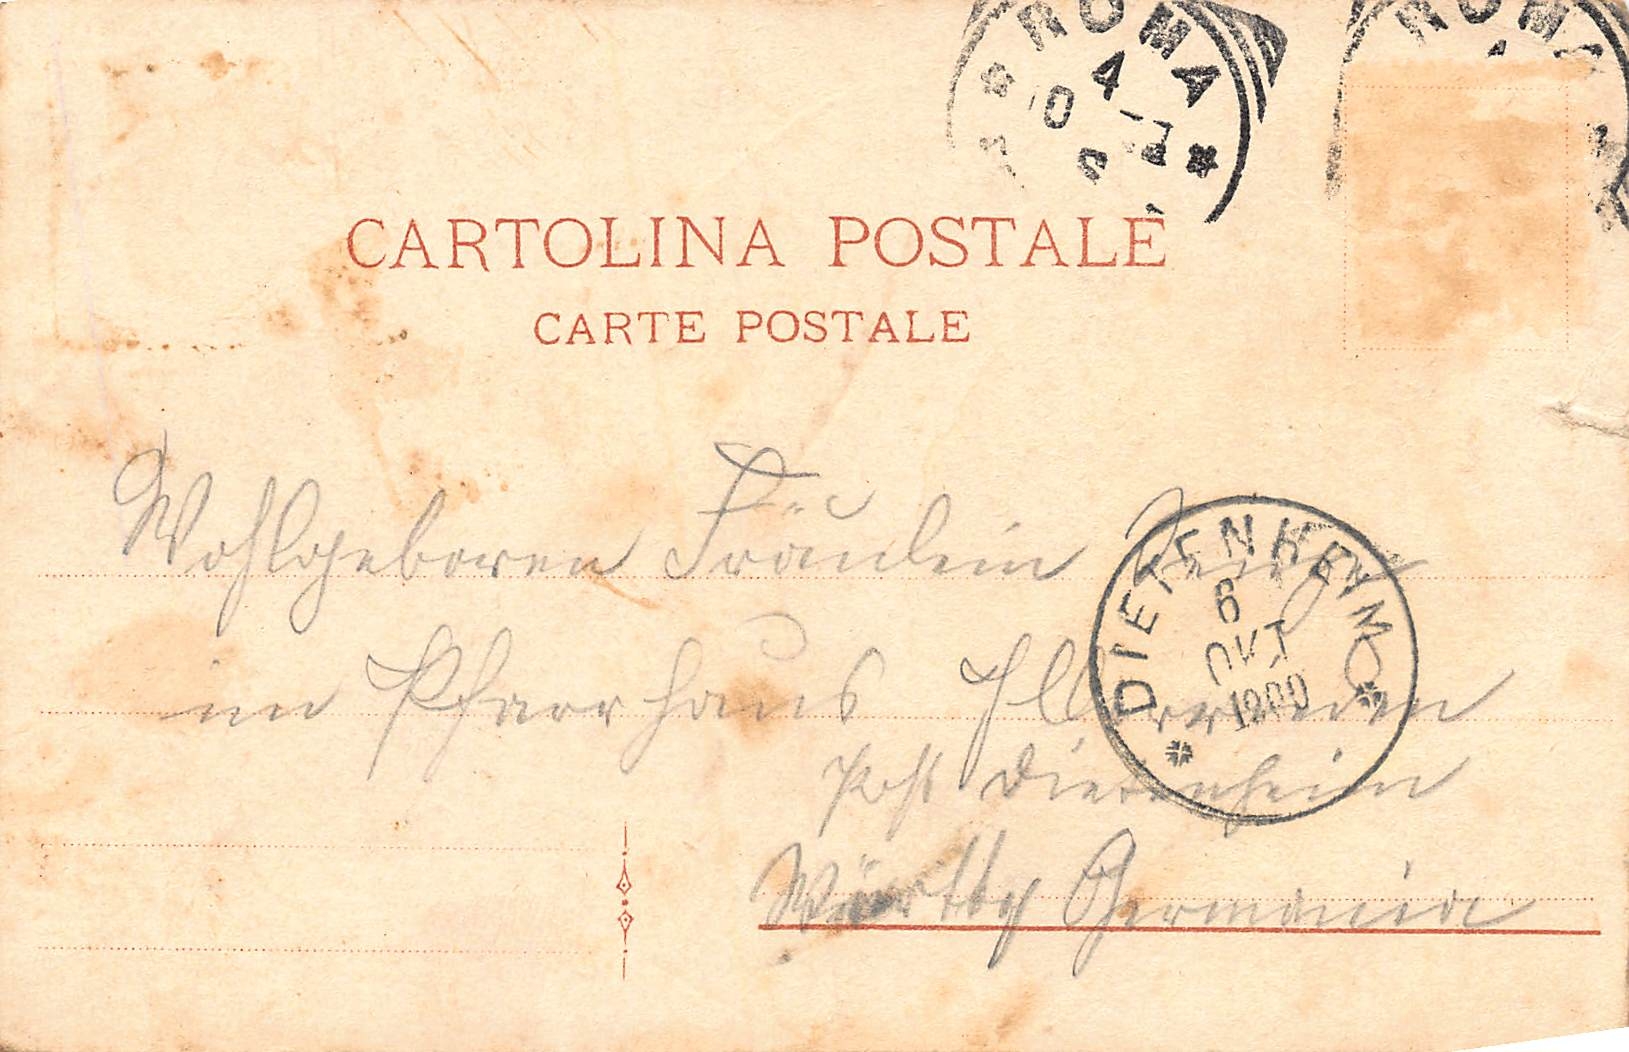 ROMA
4
ROMA
CARTOLINA POSTALE
CARTE POSTALE
Wohlgeboren Fräulein
im Pfarrhaus
Post Dietenheim
Württbg Germania
DIETENHEIM
6
OKT
1900